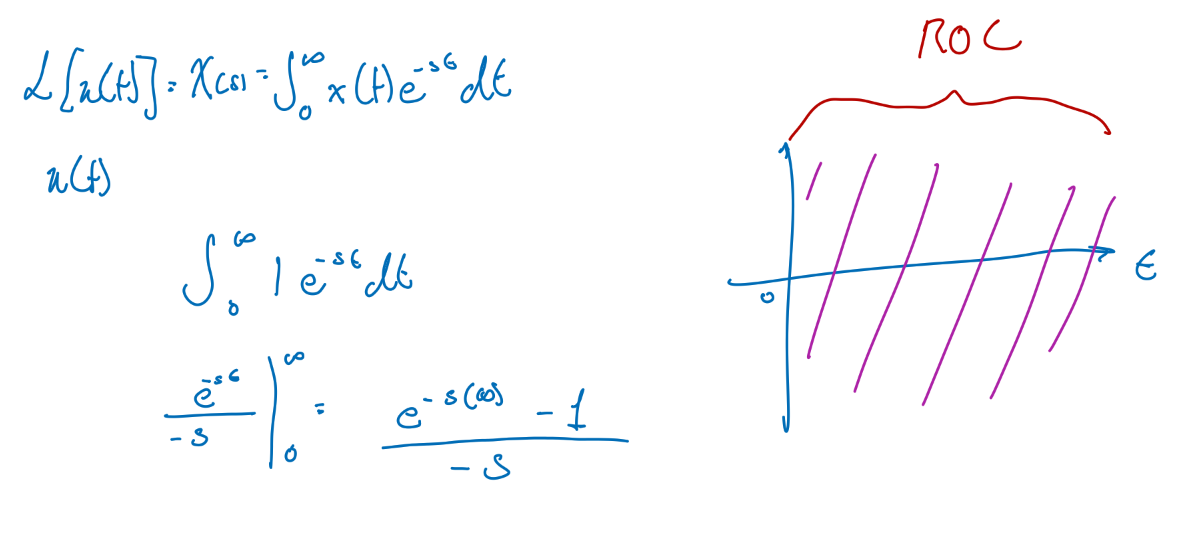 ℒ[x(t)] = X(s) = ∫₀^∞ x(t) e^{-st} dt
u(t)
∫₀^∞ 1 e^{-st} dt
e^{-st} / -s |₀^∞ = (e^{-s(∞)} - 1) / -s
ROC
0
t